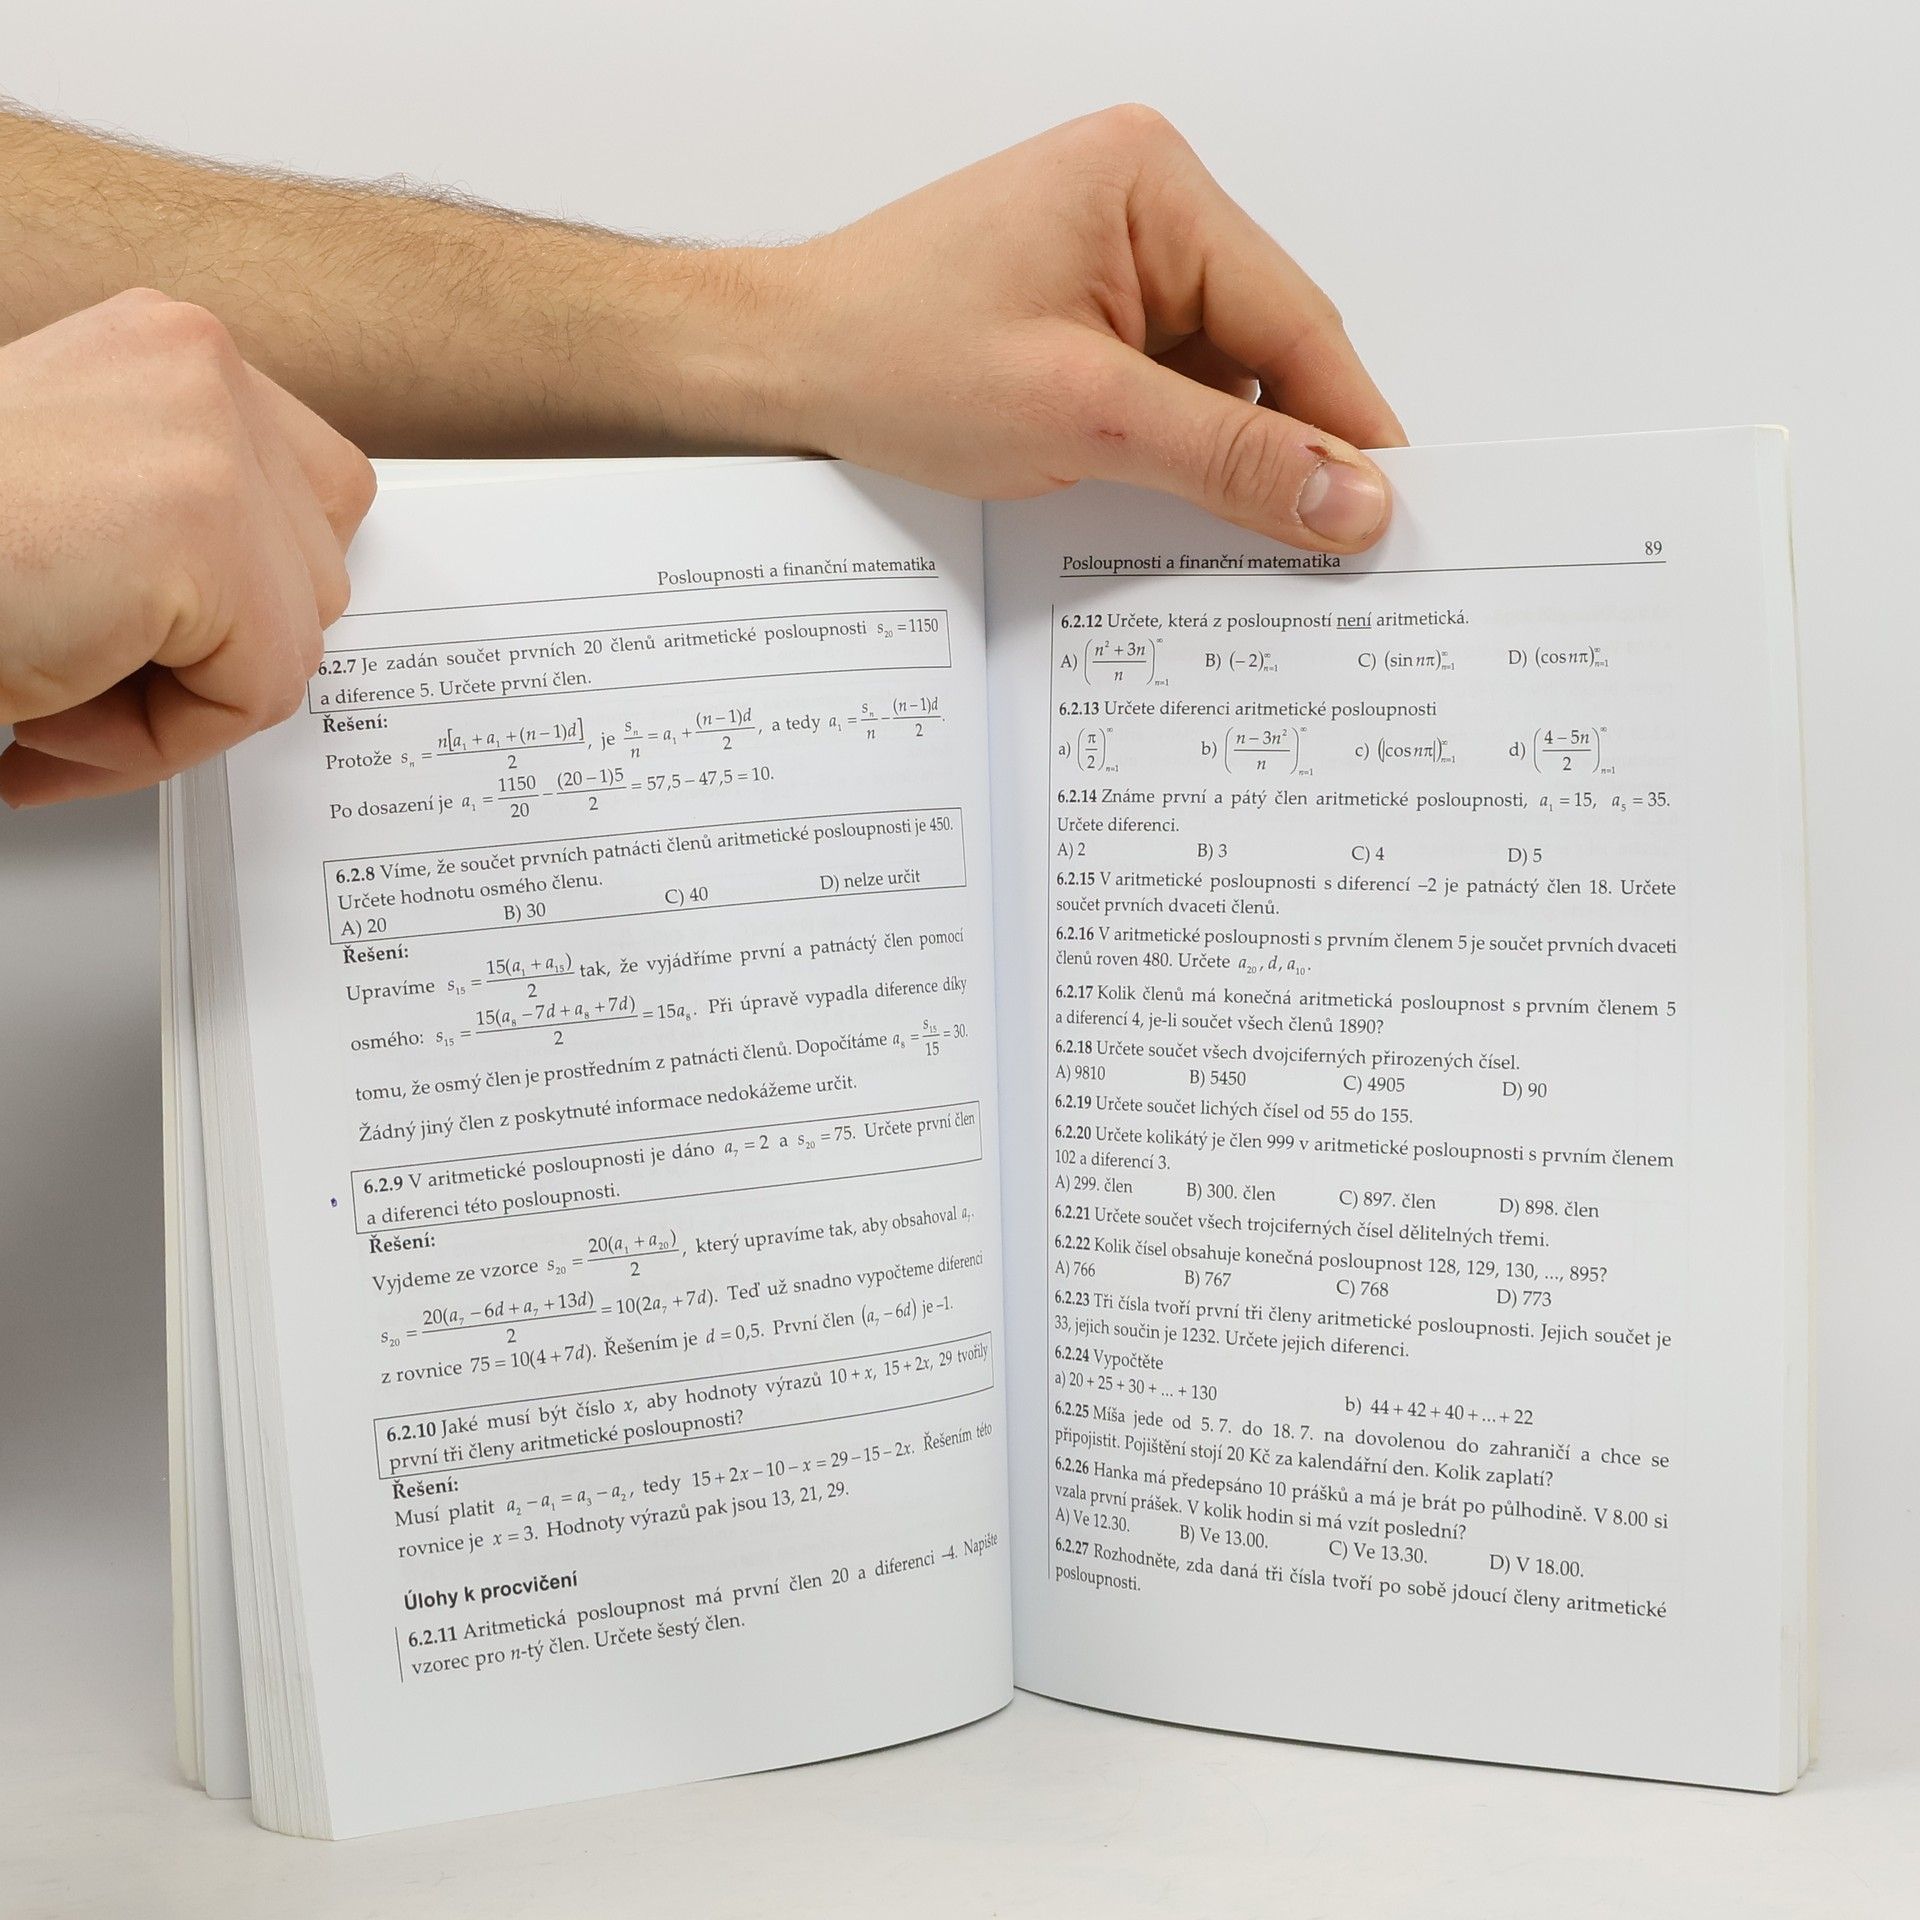 Posloupnosti a finanční matematika
6.2.7 Je zadán součet prvních 20 členů aritmetické posloupnosti s₂₀ = 1150
a diference 5. Určete první člen.
Řešení:
Protože sₙ = n[a₁ + a₁ + (n − 1)d] / 2, je sₙ/n = a₁ + (n − 1)d / 2, a tedy a₁ = sₙ/n − (n − 1)d / 2.
Po dosazení je a₁ = 1150/20 − (20 − 1)5 / 2 = 57,5 − 47,5 = 10.
6.2.8 Víme, že součet prvních patnácti členů aritmetické posloupnosti je 450.
Určete hodnotu osmého členu.
A) 20 B) 30 C) 40 D) nelze určit
Řešení:
Upravíme s₁₅ = 15(a₁ + a₁₅) / 2 tak, že vyjádříme první a patnáctý člen pomocí
osmého: s₁₅ = 15(a₈ − 7d + a₈ + 7d) / 2 = 15a₈. Při úpravě vypadla diference díky
tomu, že osmý člen je prostředním z patnácti členů. Dopočítáme a₈ = s₁₅/15 = 30.
Žádný jiný člen z poskytnuté informace nedokážeme určit.
6.2.9 V aritmetické posloupnosti je dáno a₇ = 2 a s₂₀ = 75. Určete první člen
a diferenci této posloupnosti.
Řešení:
Vyjdeme ze vzorce s₂₀ = 20(a₁ + a₂₀) / 2, který upravíme tak, aby obsahoval a₇.
s₂₀ = 20(a₇ − 6d + a₇ + 13d) / 2 = 10(2a₇ + 7d). Teď už snadno vypočteme diferenci
z rovnice 75 = 10(4 + 7d). Řešením je d = 0,5. První člen (a₇ − 6d) je −1.
6.2.10 Jaké musí být číslo x, aby hodnoty výrazů 10 + x, 15 + 2x, 29 tvořily
první tři členy aritmetické posloupnosti?
Řešení:
Musí platit a₂ − a₁ = a₃ − a₂, tedy 15 + 2x − 10 − x = 29 − 15 − 2x. Řešením této
rovnice je x = 3. Hodnoty výrazů pak jsou 13, 21, 29.
Úlohy k procvičení
6.2.11 Aritmetická posloupnost má první člen 20 a diferenci −4. Napište
vzorec pro n-tý člen. Určete šestý člen.
Posloupnosti a finanční matematika 89
6.2.12 Určete, která z posloupností není aritmetická.
A) ((n² + 3n) / n)ₙ₌₁^∞ B) (−2)ₙ₌₁^∞ C) (sin nπ)ₙ₌₁^∞ D) (cos nπ)ₙ₌₁^∞
6.2.13 Určete diferenci aritmetické posloupnosti
a) (π/2)ₙ₌₁^∞ b) ((n − 3n²) / n)ₙ₌₁^∞ c) (|cos nπ|)ₙ₌₁^∞ d) ((4 − 5n) / 2)ₙ₌₁^∞
6.2.14 Známe první a pátý člen aritmetické posloupnosti, a₁ = 15, a₅ = 35.
Určete diferenci.
A) 2 B) 3 C) 4 D) 5
6.2.15 V aritmetické posloupnosti s diferencí −2 je patnáctý člen 18. Určete
součet prvních dvaceti členů.
6.2.16 V aritmetické posloupnosti s prvním členem 5 je součet prvních dvaceti
členů roven 480. Určete a₂₀, d, a₁₀.
6.2.17 Kolik členů má konečná aritmetická posloupnost s prvním členem 5
a diferencí 4, je-li součet všech členů 1890?
6.2.18 Určete součet všech dvojciferných přirozených čísel.
A) 9810 B) 5450 C) 4905 D) 90
6.2.19 Určete součet lichých čísel od 55 do 155.
6.2.20 Určete kolikátý je člen 999 v aritmetické posloupnosti s prvním členem
102 a diferencí 3.
A) 299. člen B) 300. člen C) 897. člen D) 898. člen
6.2.21 Určete součet všech trojciferných čísel dělitelných třemi.
6.2.22 Kolik čísel obsahuje konečná posloupnost 128, 129, 130, ..., 895?
A) 766 B) 767 C) 768 D) 773
6.2.23 Tři čísla tvoří první tři členy aritmetické posloupnosti. Jejich součet je
33, jejich součin je 1232. Určete jejich diferenci.
6.2.24 Vypočtěte
a) 20 + 25 + 30 + ... + 130 b) 44 + 42 + 40 + ... + 22
6.2.25 Míša jede od 5. 7. do 18. 7. na dovolenou do zahraničí a chce se
připojistit. Pojištění stojí 20 Kč za kalendářní den. Kolik zaplatí?
6.2.26 Hanka má předepsáno 10 prášků a má je brát po půlhodině. V 8.00 si
vzala první prášek. V kolik hodin si má vzít poslední?
A) Ve 12.30. B) Ve 13.00. C) Ve 13.30. D) V 18.00.
6.2.27 Rozhodněte, zda daná tři čísla tvoří po sobě jdoucí členy aritmetické
posloupnosti.